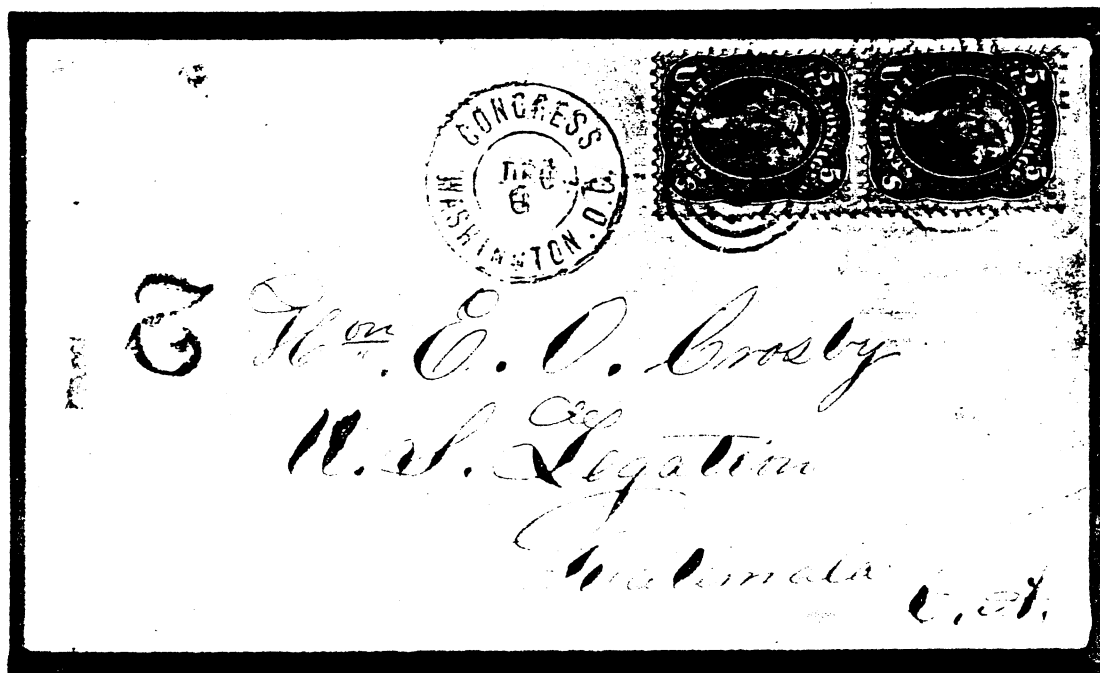 CONGRESS
WASHINGTON. D.C.
6
U.S. POSTAGE
5 5
U.S. POSTAGE
5 5
2
Hon. E. O. Crosby
U. S. Legation
Guatemala
C. A.